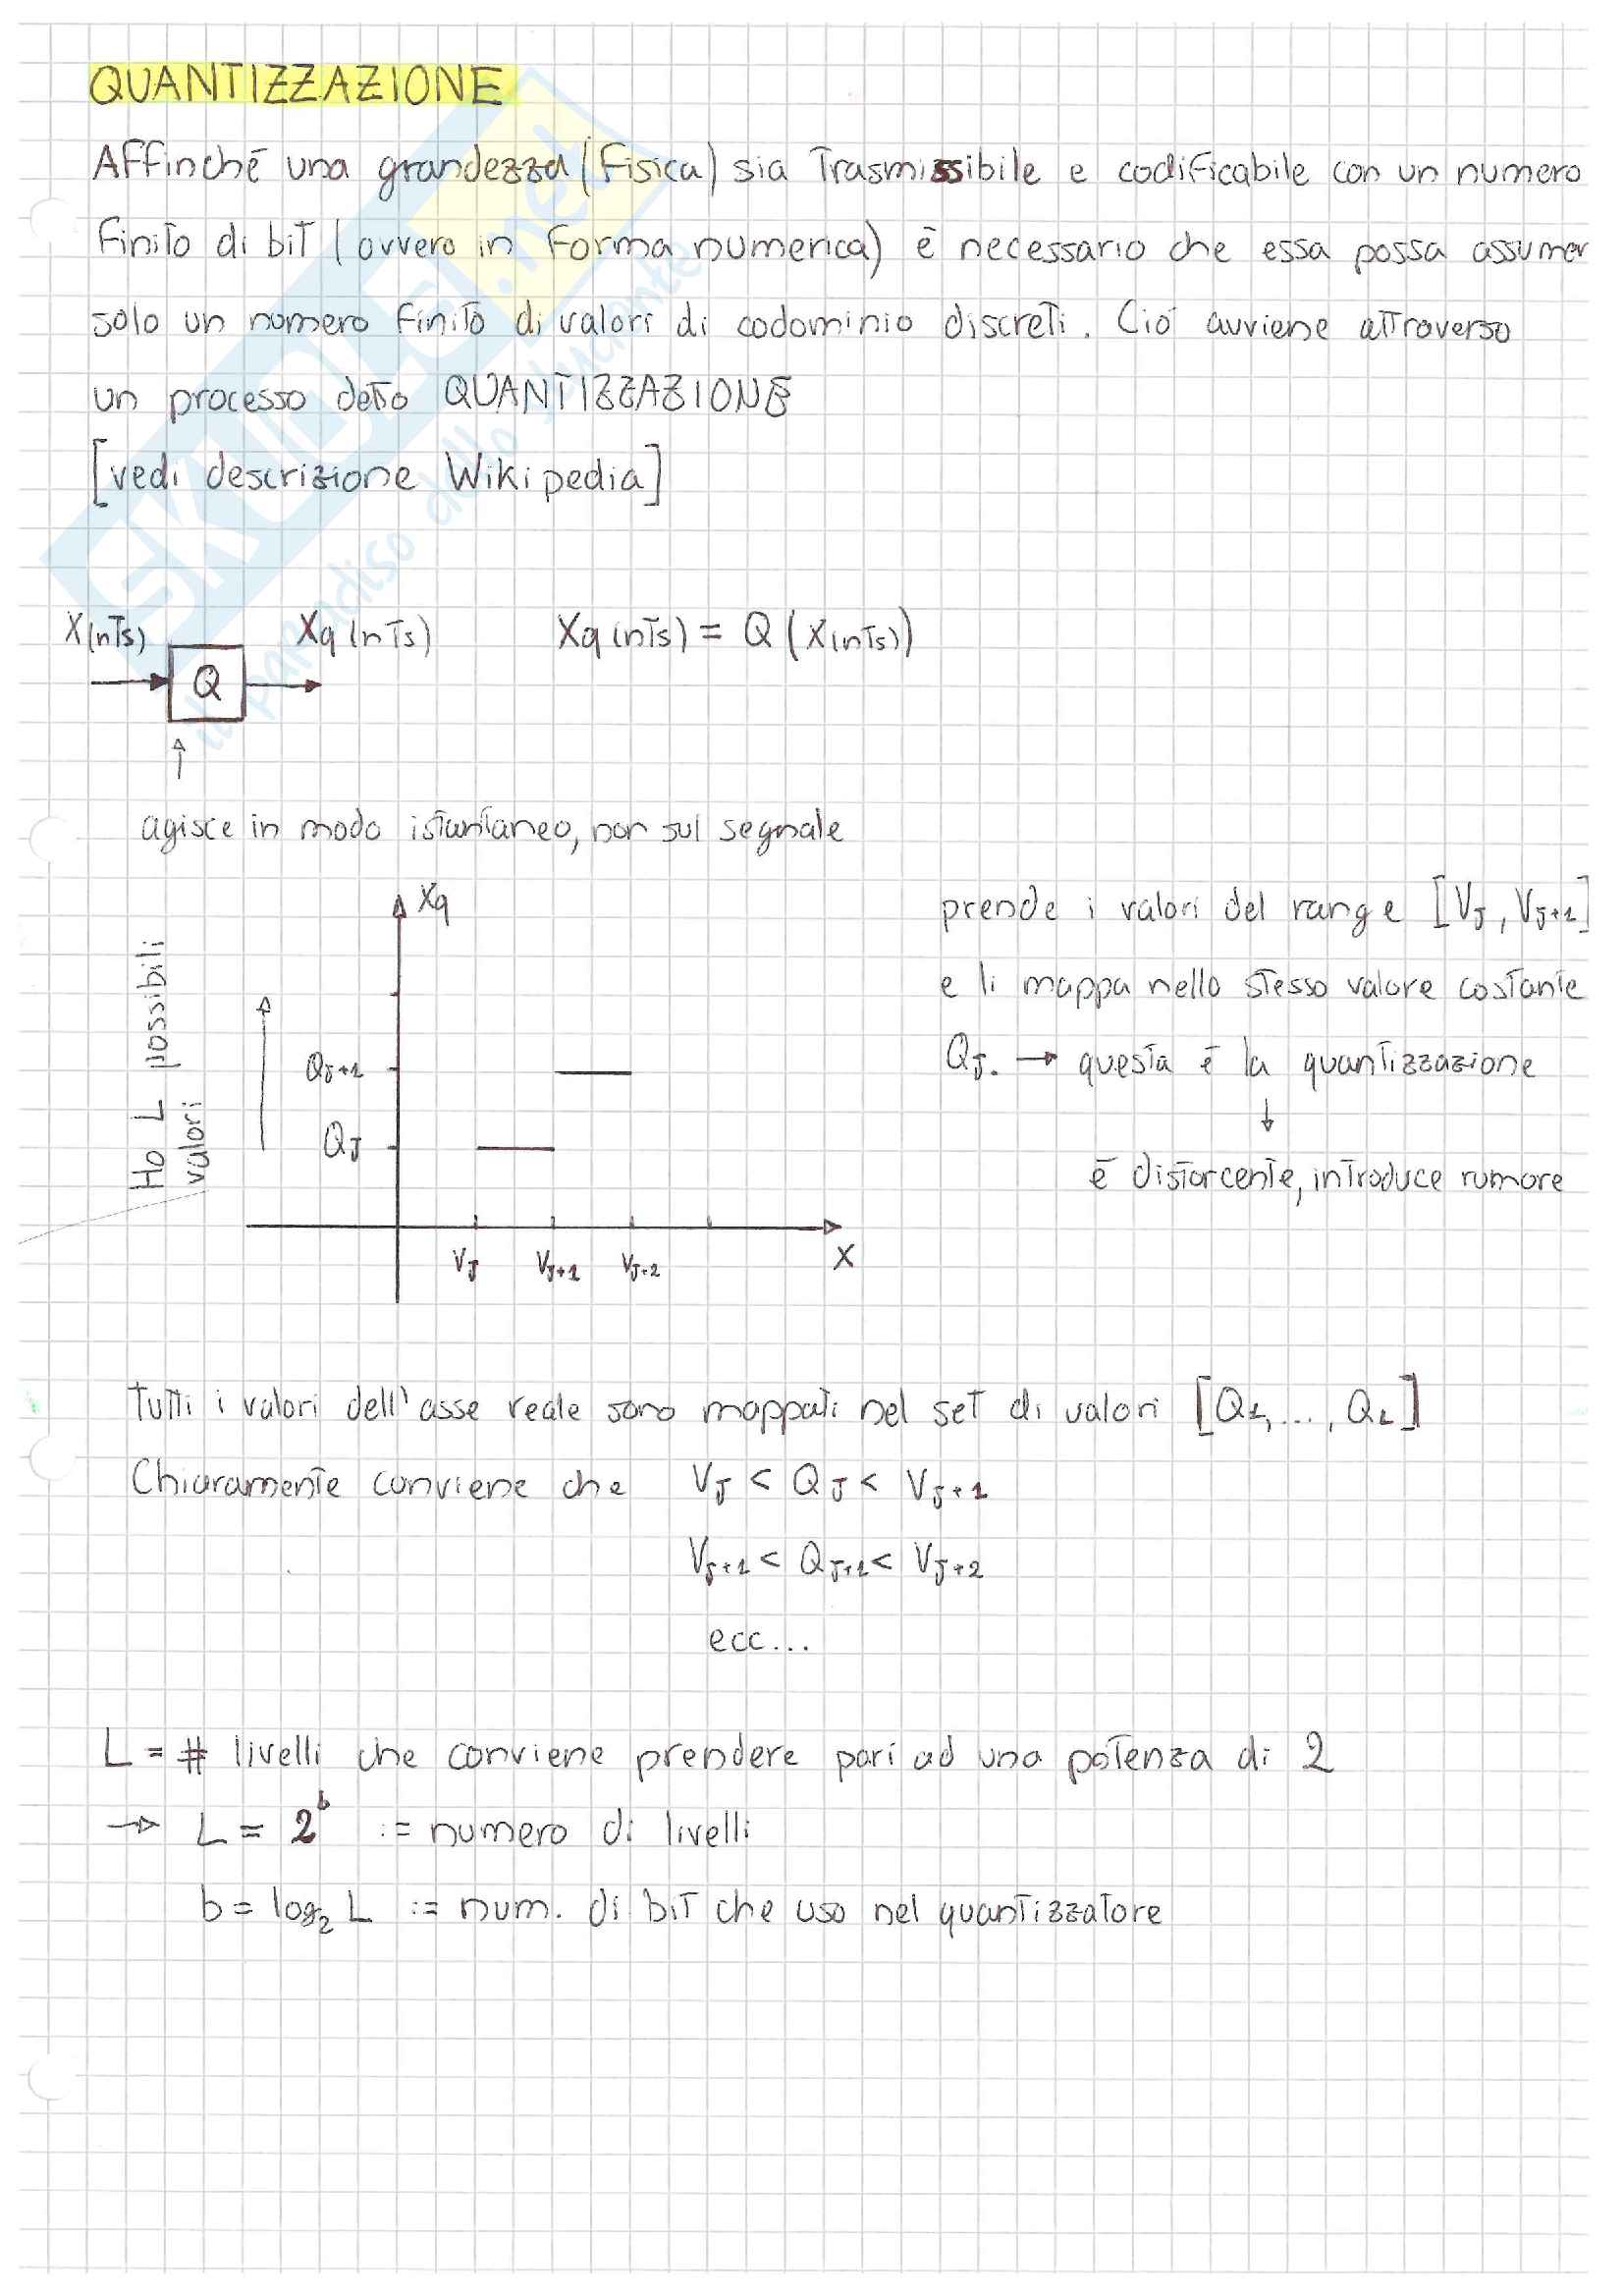 QUANTIZZAZIONE
Affinché una grandezza (fisica) sia trasmissibile e codificabile con un numero
finito di bit (ovvero in forma numerica) è necessario che essa possa assumer
solo un numero finito di valori di codominio discreti. Ciò avviene attraverso
un processo detto QUANTIZZAZIONE
[vedi descrizione Wikipedia]
SKUOLA.net
il paradiso dello studente
X(nTs) Xq(nTs) Xq(nTs) = Q(X(nTs))
Q
agisce in modo istantaneo, non sul segnale
Xq
prende i valori del range [VJ, VJ+1]
e li mappa nello stesso valore costante
QJ. → questa è la quantizzazione
↓
è distorcente, introduce rumore
Ho L possibili
valori
QJ+1
QJ
VJ VJ+1 VJ+2 X
tutti i valori dell'asse reale sono mappati nel set di valori [Q1, ..., QL]
Chiaramente conviene che VJ < QJ < VJ+1
VJ+1 < QJ+1 < VJ+2
ecc...
L = # livelli che conviene prendere pari ad una potenza di 2
→ L = 2^b := numero di livelli
b = log2 L := num. di bit che uso nel quantizzatore